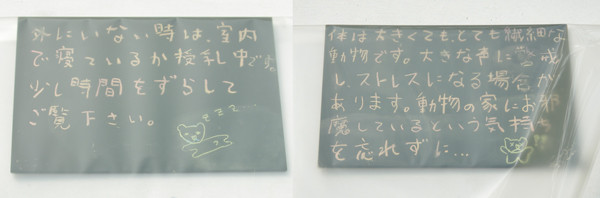 外にいない時は、室内
で寝ているか授乳中です。
少し時間をずらして
ご覧下さい。
zzz...
体は大きくてもとても繊細な
動物です。大きな声に警戒
し、ストレスになる場合が
あります。動物の家にお邪
魔しているという気持ち
を忘れずに…